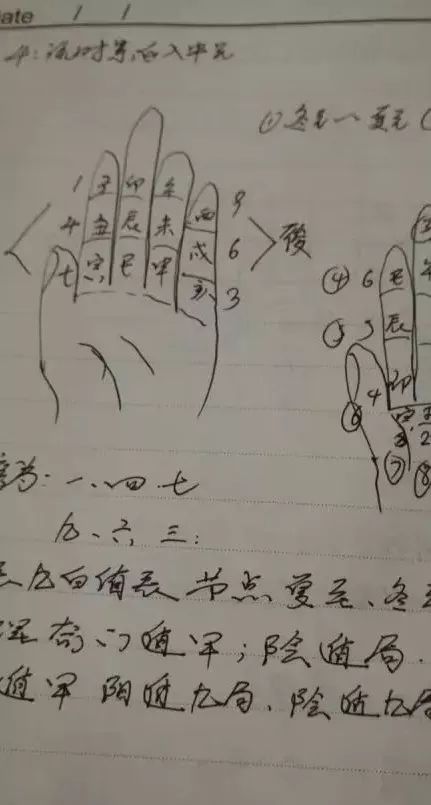 ate / /
4: 流时 入中宫
① 冬至一 夏至 (
1 子 卯 午 酉 9
4 丑 辰 未 戌 6
七 寅 巳 申 亥 3
④ 6 巳 午
⑤ 5 辰
4 卯
⑥ 寅 丑
3 2
⑦ ⑧
为: 一、四、七
九、六、三:
九白值表 节点 夏至、冬至
奇门遁甲;阴遁局.
遁甲 阳遁九局.阴遁九局